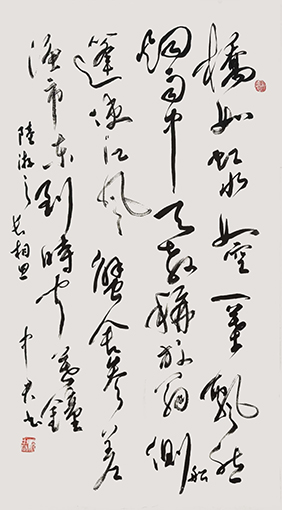 橋如虹水如空一葉飄然
烟雨中天教稱放翁側船
篷使江風蟹舍參差
漁市東到時闻暮鐘
陸游之長相思